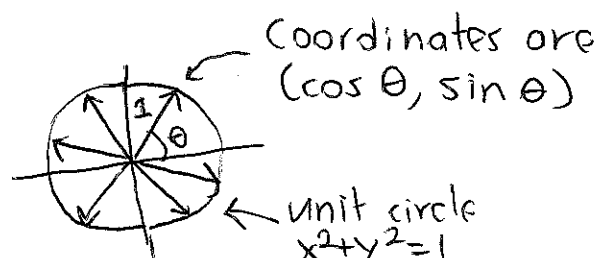 Coordinates are
(cos θ, sin θ)
1
θ
unit circle
x²+y²=1